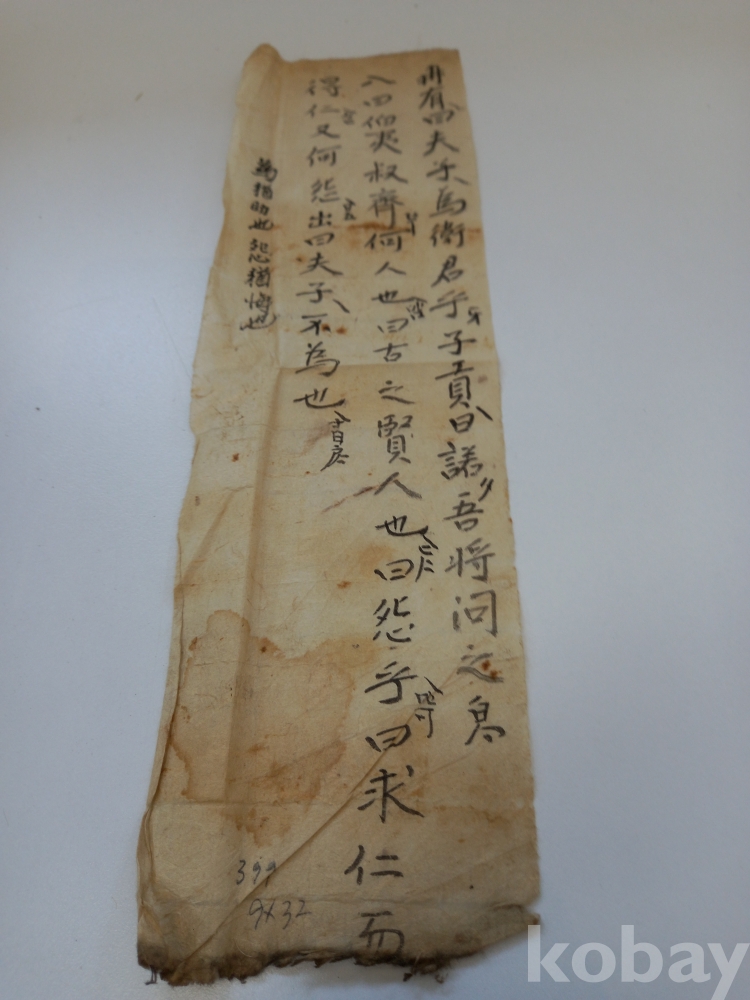 冉有曰夫子為衛君乎子貢曰諾吾將问之
入曰伯夷叔齊何人也曰古之賢人也曰怨乎曰求仁而
得仁又何怨出曰夫子不為也
為猶助也怨猶悔也
399
9x32
kobay